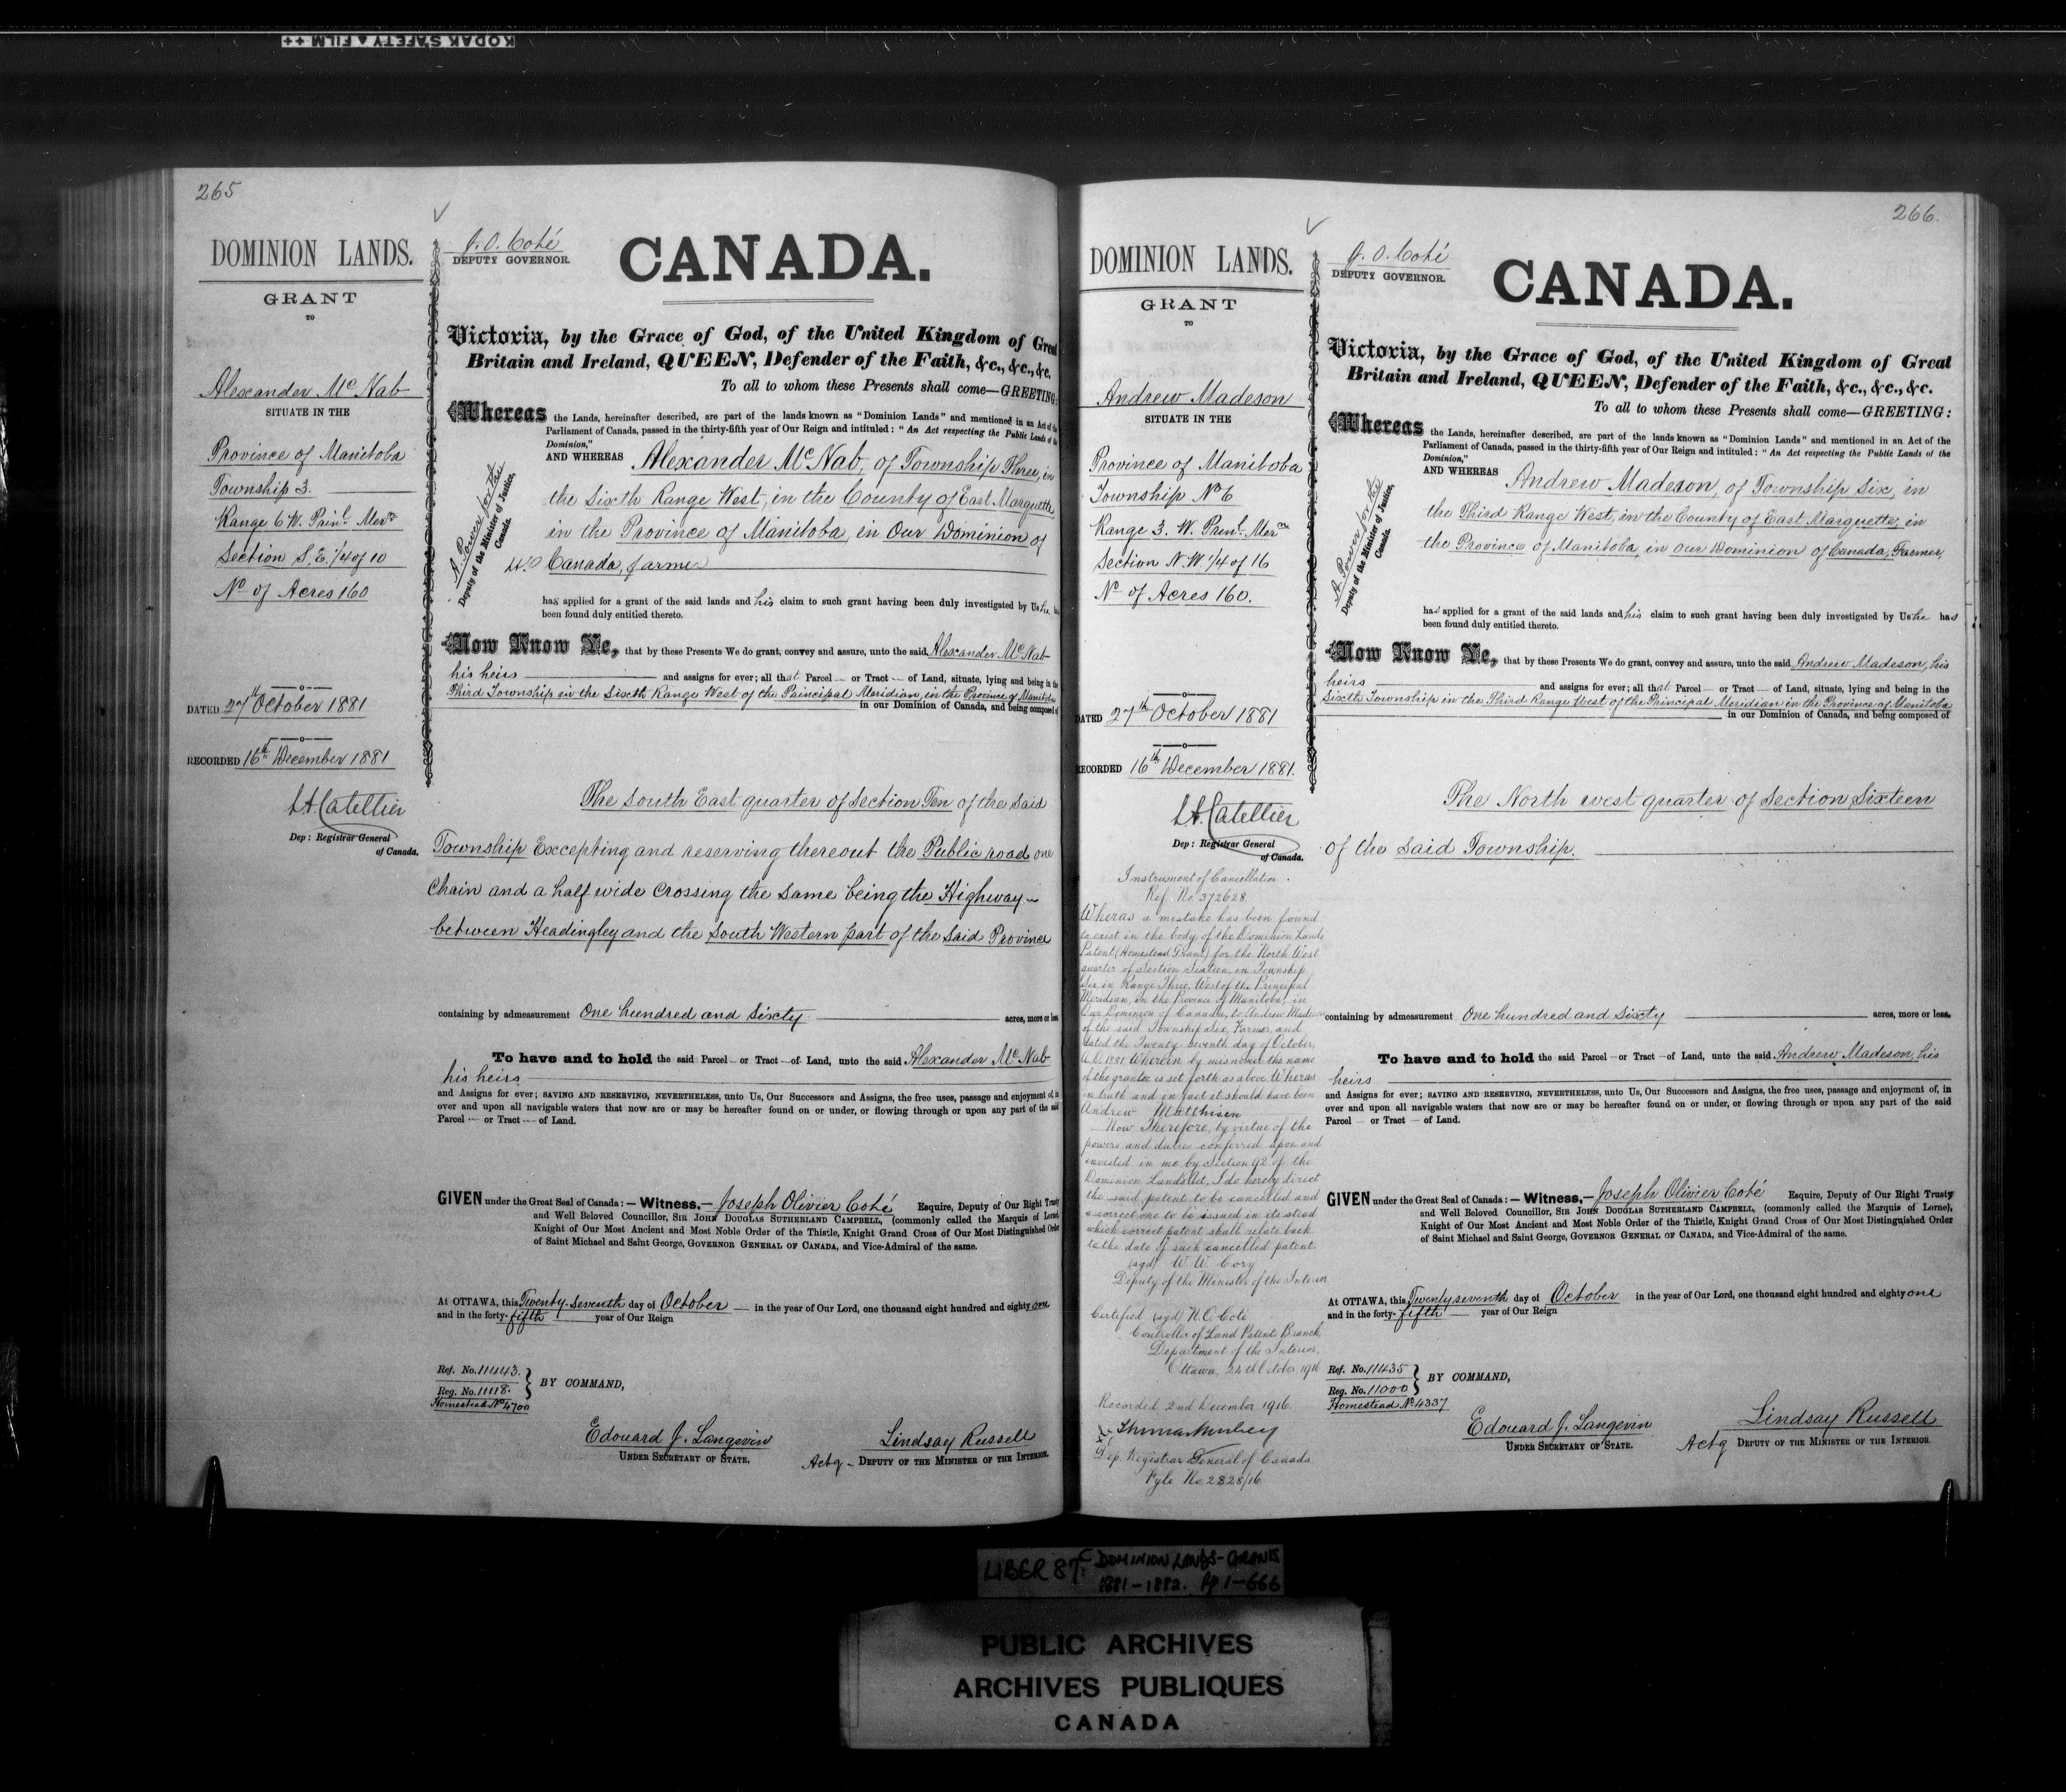 KODAK SAFETY ▲ FILM ++
265
DOMINION LANDS.
GRANT
TO
Alexander McNab
SITUATE IN THE
Province of Manitoba
Township 3.
Range 6 W. Prin.l Mer.n
Section S. E. 1/4 of 10
No of Acres 160
DATED 27th October 1881
RECORDED 16th December 1881
L. A. Catellier
Dep: Registrar General
of Canada.
J. O. Coté
DEPUTY GOVERNOR.
CANADA.
Victoria, by the Grace of God, of the United Kingdom of Great
Britain and Ireland, QUEEN, Defender of the Faith, &c., &c., &c.
To all to whom these Presents shall come—GREETING:
Whereas the Lands, hereinafter described, are part of the lands known as "Dominion Lands" and mentioned in an Act of the
Parliament of Canada, passed in the thirty-fifth year of Our Reign and intituled: "An Act respecting the Public Lands of the
Dominion,"
AND WHEREAS Alexander McNab, of Township Three, in
the Sixth Range West, in the County of East Marquette,
in the Province of Manitoba, in Our Dominion of
Canada, farmer
A. Power for the
Deputy of the Minister of Justice,
Canada.
has applied for a grant of the said lands and his claim to such grant having been duly investigated by Us he has
been found duly entitled thereto.
Now Know Ye, that by these Presents We do grant, convey and assure, unto the said Alexander McNab
his heirs and assigns for ever; all that Parcel or Tract of Land, situate, lying and being in the
Third Township in the Sixth Range West of the Principal Meridian, in the Province of Manitoba
in our Dominion of Canada, and being composed of
The South East quarter of Section Ten of the said
Township Excepting and reserving thereout the Public road one
Chain and a half wide Crossing the same being the Highway
between Headingley and the South Western part of the said Province
containing by admeasurement One hundred and Sixty acres, more or less.
To have and to hold the said Parcel or Tract of Land, unto the said Alexander McNab
his heirs
and Assigns for ever; SAVING AND RESERVING, NEVERTHELESS, unto Us, Our Successors and Assigns, the free uses, passage and enjoyment of, in
over and upon all navigable waters that now are or may be hereafter found on or under, or flowing through or upon any part of the said
Parcel or Tract of Land.
GIVEN under the Great Seal of Canada:—Witness,—Joseph Olivier Coté Esquire, Deputy of Our Right Trusty
and Well Beloved Councillor, SIR JOHN DOUGLAS SUTHERLAND CAMPBELL, (commonly called the Marquis of Lorne),
Knight of Our Most Ancient and Most Noble Order of the Thistle, Knight Grand Cross of Our Most Distinguished Order
of Saint Michael and Saint George, GOVERNOR GENERAL OF CANADA, and Vice-Admiral of the same.
At OTTAWA, this Twenty-seventh day of October in the year of Our Lord, one thousand eight hundred and eighty one
and in the forty-fifth year of Our Reign
Ref. No. 11443.
Reg. No. 11118.
Homestead No 4700
BY COMMAND,
Edouard J. Langevin
UNDER SECRETARY OF STATE.
Lindsay Russell
Actg - DEPUTY OF THE MINISTER OF THE INTERIOR.
266.
DOMINION LANDS.
GRANT
TO
Andrew Madeson
SITUATE IN THE
Province of Manitoba
Township No 6
Range 3. W. Prin.l Mer.n
Section N. W. 1/4 of 16
No of Acres 160.
DATED 27th October 1881
RECORDED 16th December 1881.
L. A. Catellier
Dep: Registrar General
of Canada.
Instrument of Cancellation.
Ref. No. 372628
Wheras a mistake has been found
to exist in the body of the Dominion Lands
Patent (Homestead Grant) for the North West
quarter of Section Sixteen, in Township
Six in Range Three, West of the Principal
Meridian, in the Province of Manitoba, in
Our Dominion of Canada, to Andrew Madeson
of the said Township Six, Farmer, and
dated the Twenty-seventh day of October,
A.D. 1881 Wherein by misnomer the name
of the grantee is set forth as above Wheras
in truth and in fact it should have been
Andrew Matthisen
Now Therefore, by virtue of the
powers and duties conferred upon and
invested in me by Section 92 of the
Dominion Lands Act, I do hereby direct
the said patent to be cancelled and
a correct one to be issued in its stead
which correct patent shall relate back
to the date of such cancelled patent.
(sgd) W. W. Cory
Deputy of the Minister of the Interior
Certified (sgd) N. O. Coté
Controller of Land Patents Branch,
Department of the Interior,
Ottawa, 24th October 1916
Recorded 2nd December 1916.
Dep. Registrar General of Canada
Fyle No. 2828/16
J. O. Coté
DEPUTY GOVERNOR.
CANADA.
Victoria, by the Grace of God, of the United Kingdom of Great
Britain and Ireland, QUEEN, Defender of the Faith, &c., &c., &c.
To all to whom these Presents shall come—GREETING:
Whereas the Lands, hereinafter described, are part of the lands known as "Dominion Lands" and mentioned in an Act of the
Parliament of Canada, passed in the thirty-fifth year of Our Reign and intituled: "An Act respecting the Public Lands of the
Dominion,"
AND WHEREAS Andrew Madeson, of Township Six, in
the Third Range West, in the County of East Marquette, in
the Province of Manitoba, in Our Dominion of Canada, Farmer,
A. Power for the
Deputy of the Minister of Justice,
Canada.
has applied for a grant of the said lands and his claim to such grant having been duly investigated by Us he has
been found duly entitled thereto.
Now Know Ye, that by these Presents We do grant, convey and assure, unto the said Andrew Madeson, his
heirs and assigns for ever; all that Parcel or Tract of Land, situate, lying and being in the
Sixth Township in the Third Range West of the Principal Meridian in the Province of Manitoba
in our Dominion of Canada, and being composed of
The North West quarter of Section Sixteen
of the said Township.
containing by admeasurement One hundred and Sixty acres, more or less.
To have and to hold the said Parcel or Tract of Land, unto the said Andrew Madeson, his
heirs
and Assigns for ever; SAVING AND RESERVING, NEVERTHELESS, unto Us, Our Successors and Assigns, the free uses, passage and enjoyment of, in
over and upon all navigable waters that now are or may be hereafter found on or under, or flowing through or upon any part of the said
Parcel or Tract of Land.
GIVEN under the Great Seal of Canada:—Witness,—Joseph Olivier Coté Esquire, Deputy of Our Right Trusty
and Well Beloved Councillor, SIR JOHN DOUGLAS SUTHERLAND CAMPBELL, (commonly called the Marquis of Lorne),
Knight of Our Most Ancient and Most Noble Order of the Thistle, Knight Grand Cross of Our Most Distinguished Order
of Saint Michael and Saint George, GOVERNOR GENERAL OF CANADA, and Vice-Admiral of the same.
At OTTAWA, this Twenty seventh day of October in the year of Our Lord, one thousand eight hundred and eighty one
and in the forty-fifth year of Our Reign
Ref. No. 11435
Reg. No. 11000
Homestead No 4337
BY COMMAND,
Edouard J. Langevin
UNDER SECRETARY OF STATE.
Lindsay Russell
Actg DEPUTY OF THE MINISTER OF THE INTERIOR.
LIBER 87C: DOMINION LANDS-GRANTS
1881-1882. Pp 1-666
PUBLIC ARCHIVES
ARCHIVES PUBLIQUES
CANADA